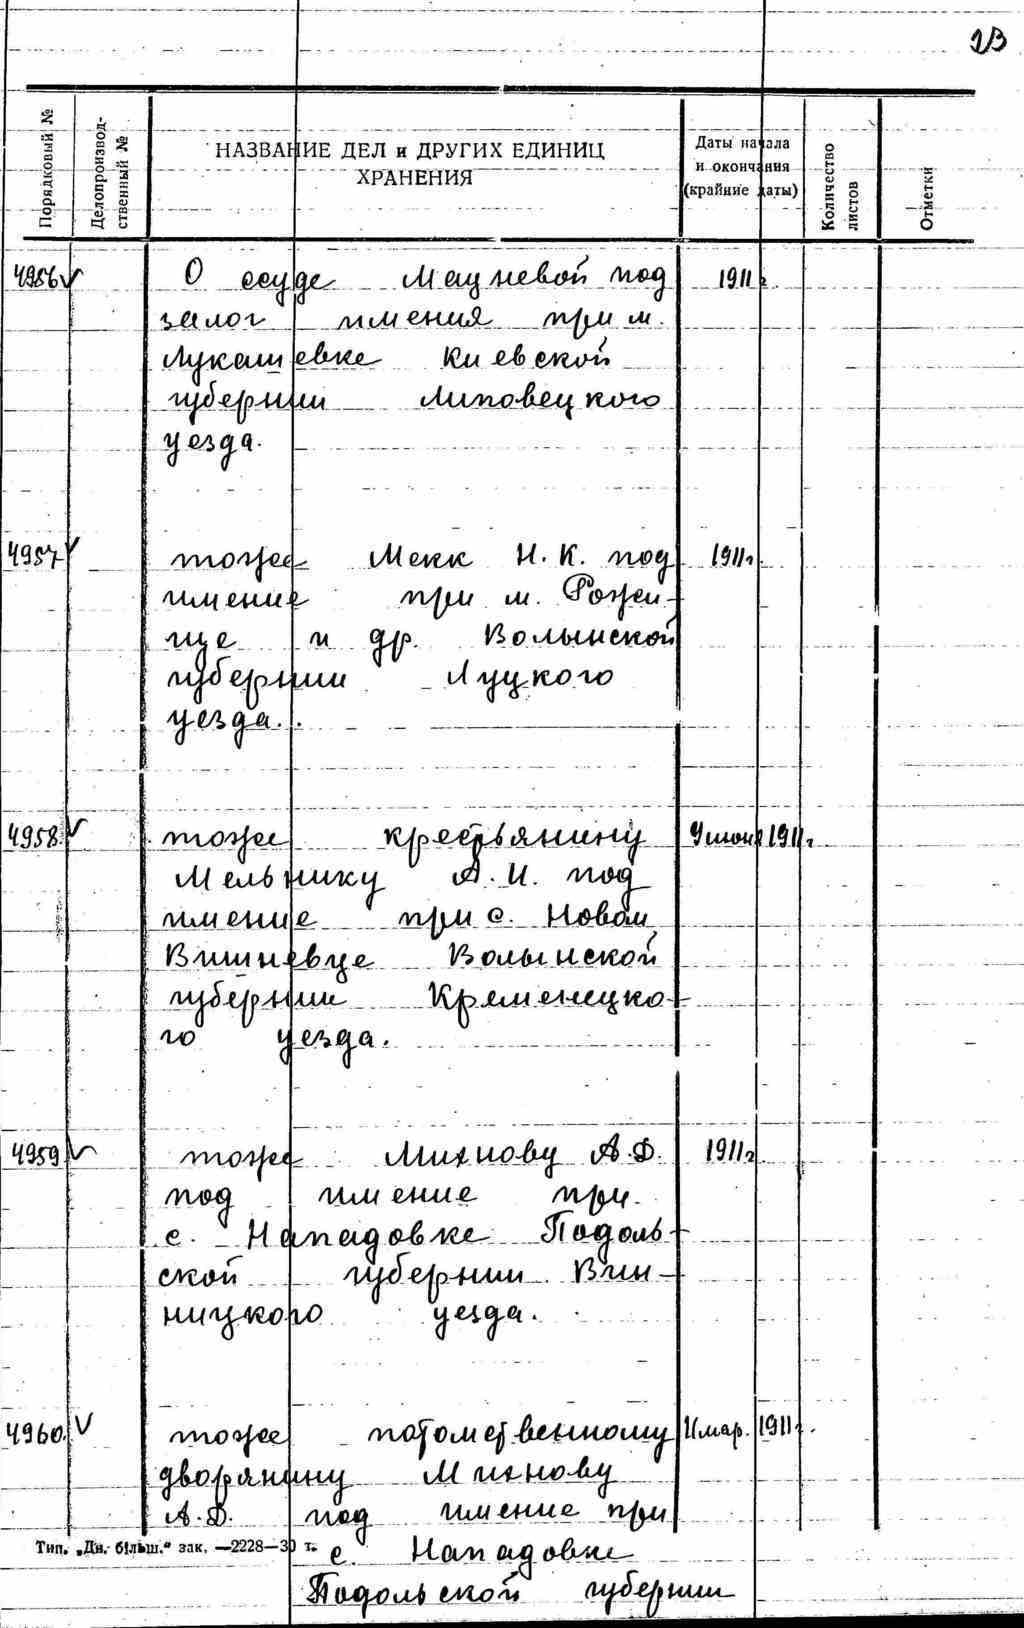 23
Порядковый №
Делопроизвод-
ственный №
НАЗВАНИЕ ДЕЛ и ДРУГИХ ЕДИНИЦ
ХРАНЕНИЯ
Даты начала
и окончания
(крайние даты)
Количество
листов
Отметки
4956 О ссуде Мацневой под 1911г.
залог имения при м.
Лукашевке Киевской
губернии Липовецкого
уезда.
4957 тоже Мекк Н. К. под 1911г.
имение при м. Рожи-
ще и др. Волынской
губернии Луцкого
уезда.
4958. тоже крестьянину 9 июня 1911г.
Мельнику А. И. под
имение при с. Новом
Вишневце Волынской
губернии Кременецко-
го уезда.
4959 тоже Михнову А. Д. 1911г.
под имение при
с. Нападовке Подоль-
ской губернии Вин-
ницкого уезда.
4960. тоже потомственному мар. 1911г.
дворянину Михнову
А. Д. под имение при
с. Нападовке
Подольской губернии
Тип. „Дн. більш.“ зак. —2228—30 т.